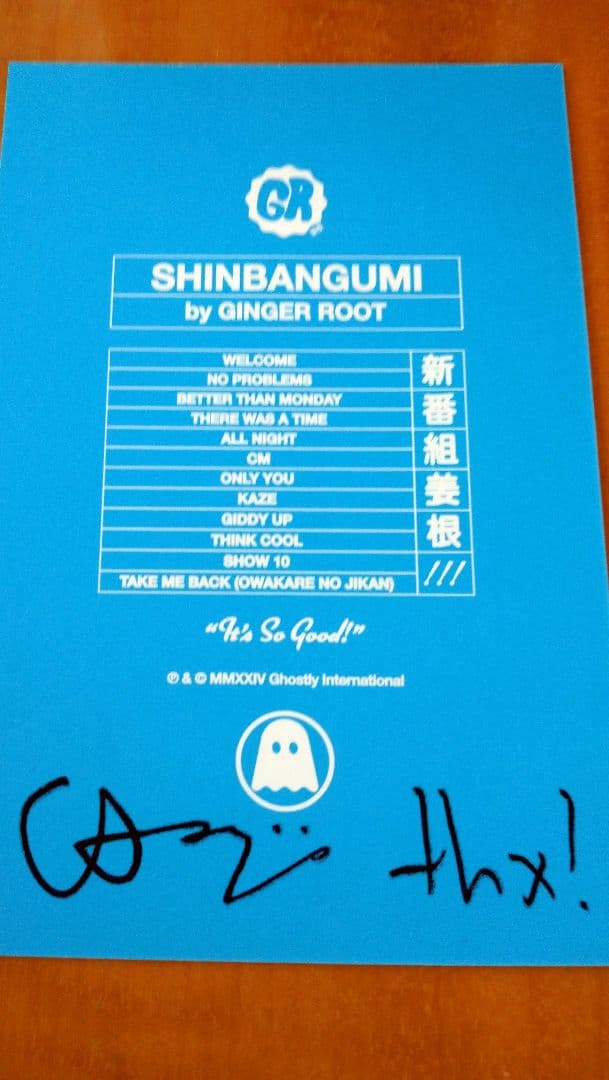 GR
SHINBANGUMI
by GINGER ROOT
WELCOME
NO PROBLEMS
BETTER THAN MONDAY
THERE WAS A TIME
ALL NIGHT
CM
ONLY YOU
KAZE
GIDDY UP
THINK COOL
SHOW 10
TAKE ME BACK (OWAKARE NO JIKAN)
新
番
組
姜
根
///
“It's So Good!”
℗ & © MMXXIV Ghostly International
thx!